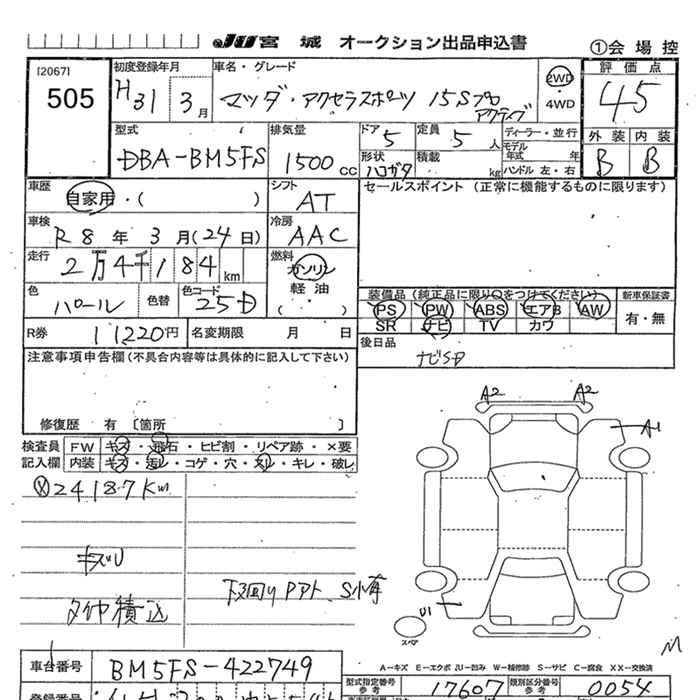 JU 宮城 オークション出品申込書
①会場控
[2067]
505
初度登録年月
H31 3月
車名・グレード
マツダ・アクセラスポーツ 15Sプロ
アクティブ
2WD
・
4WD
評価点
45
型式
DBA-BM5FS
排気量
1500 CC
ドア
5
定員
5人
ディーラー・並行
モデル
年式 年
ハンドル 左・右
形状
ハコガタ
積載
kg
外装 内装
B B
車歴
自家用・( )
シフト
AT
セールスポイント (正常に機能するものに限ります)
車検
R8年3月(24日)
冷房
AAC
走行
2万4千184km
燃料
ガソリン
軽油
( ・ )
色
パール
色替
色コード
25D
装備品(純正品に限り○をつけてください)
新車保証書
PS PW ABS エアB AW
SR ナビ TV カワ
有・無
R券
11220円
名変期限 月 日
後日品
ナビSD
注意事項申告欄(不具合内容等は具体的に記入して下さい)
修復歴 有 〔箇所 〕
検査員
記入欄
FW キズ・飛石・ヒビ割・リペア跡・×要
内装 キズ・汚レ・コゲ・穴・スレ・キレ・破レ
24187Km
キズU
下回りPアト、S小有
A2 A2
A1
U1
スペア
A-キズ E-エクボ U-凹み W-補修跡 S-サビ C-腐食 XX-交換済
車台番号
BM5FS-422749
型式指定番号
参考
17607
類別区分番号
参考
0054
登録番号